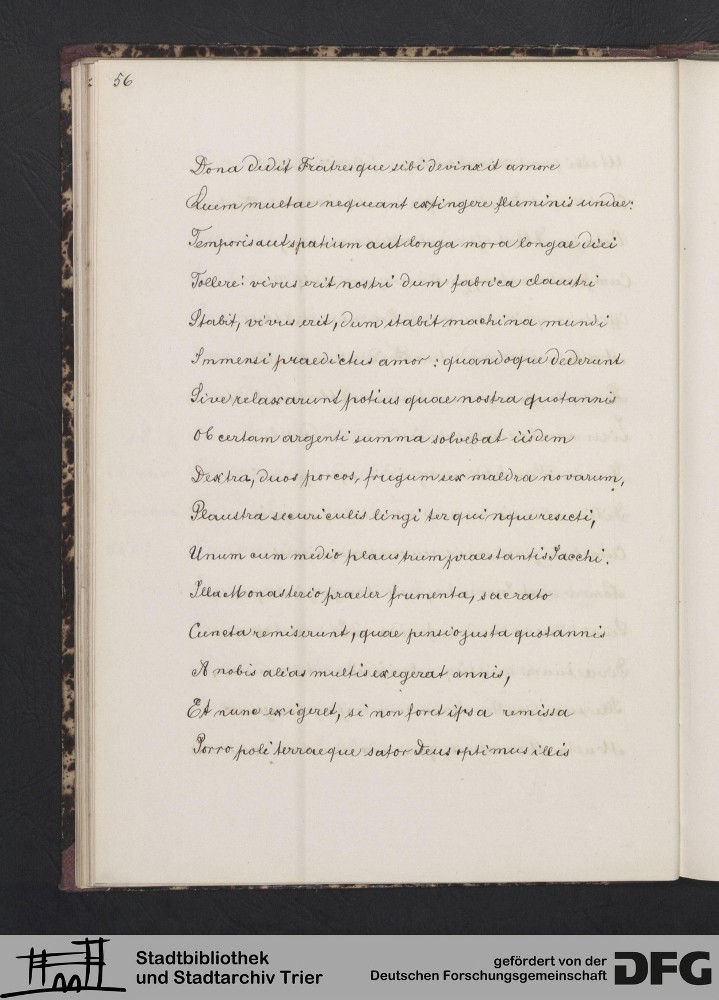 56
Dona didit Fratresque sibi devinxit amore
Quem multae nequeant extingere fluminis undae:
Temporis aut spatium aut longa mora longae diei
Tollere: vivus erit nostri dum fabrica claustri
Stabit, vivus erit, dum stabit machina mundi
Immensi praedictus amor: quandoque dederunt
Sive relaxarunt potius quae nostra quotannis
Ob certam argenti summa solvebat iisdem
Dextra, duos porcos, frugum sex maldra novarum,
Plaustra securiculis lingi ter quinque resecti,
Unum cum medio plaustrum praestantis Jacchi.
Illa Monasterio praeter frumenta, sacrato
Cuncta remiserunt, quae pensio justa quotannis
A nobis alias multis exegerat annis,
Et nunc exigeret, si non foret ipsa remissa
Porro poli terraeque sator Deus optimus illis
Stadtbibliothek
und Stadtarchiv Trier
gefördert von der
Deutschen Forschungsgemeinschaft
DFG